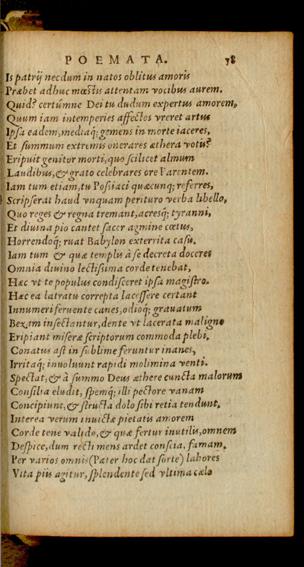 POEMATA. 38
Is patrij necdum in natos oblitus amoris
Præbet adhuc mœstis attentam vocibus aurem.
Quid? certúmne Dei tu dudum expertus amorem,
Quum iam intemperies affectos vreret artus
Ipsa eadem, mediaq; gemens in morte iaceres,
Et summum extremis onerares æthera votis?
Eripuit genitor morti, quo scilicet almum
Laudibus, & grato celebrares ore Parentem.
Iam tum etiam, tu Possiaci quæcunq; referres,
Scripserat haud vnquam perituro verba libello,
Quo reges & regna tremant, acresq; tyranni,
Et diuina pio cantet sacer agmine cœtus,
Horrendoq; ruat Babylon exterrita casu.
Iam tum & quæ templis à se decreta doceres
Omnia diuino lectissima corde tenebat,
Hæc vt te populus condisceret ipsa magistro.
Hæc ea latratu correpta lacessere certant
Innumeri feruente canes, odioq; grauatum
Bezam insectantur, dente vt lacerata maligno
Eripiant miseræ scriptorum commoda plebi,
Conatus ast in sublime feruntur inanes,
Irritaq; inuoluunt rapidi molimina venti.
Spectat, & à summo Deus æthere cuncta malorum
Consilia eludit, spemq; illi pectore vanam
Concipiunt, & structa dolo sibi retia tendunt.
Interea verum inuictæ pietatis amorem
Corde tene valido, & quæ fertur inutilis, omnem
Despice, dum recti mens ardet conscia, famam.
Per varios omnis (Pater hoc dat sorte) labores
Vita piis agitur, splendente sed vltima cælo